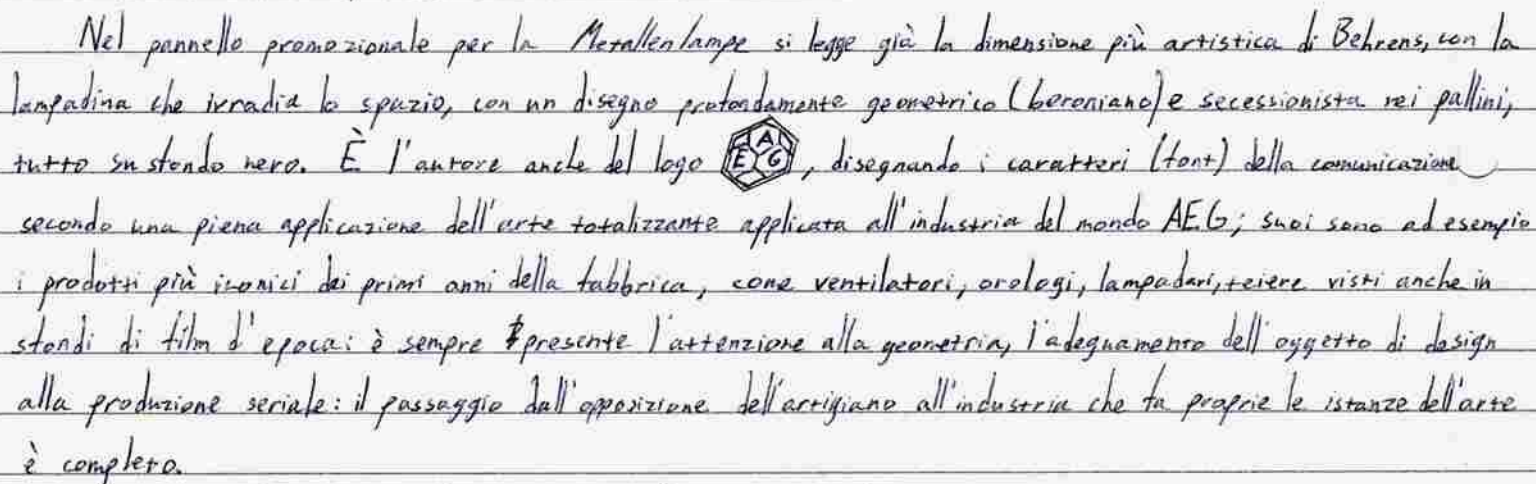 Nel pannello promozionale per la Metallenlampe si legge già la dimensione più artistica di Behrens, con la
lampadina che irradia lo spazio, con un disegno profondamente geometrico (beroniano) e secessionista nei pallini,
tutto su sfondo nero. È l'autore anche del logo AEG, disegnando i caratteri (font) della comunicazione
secondo una piena applicazione dell'arte totalizzante applicata all'industria del mondo AEG; suoi sono ad esempio
i prodotti più iconici dei primi anni della fabbrica, come ventilatori, orologi, lampadari, teiere visti anche in
sfondi di film d'epoca: è sempre presente l'attenzione alla geometria, l'adeguamento dell'oggetto di design
alla produzione seriale: il passaggio dall'opposizione dell'artigiano all'industria che fa proprie le istanze dell'arte
è completo.